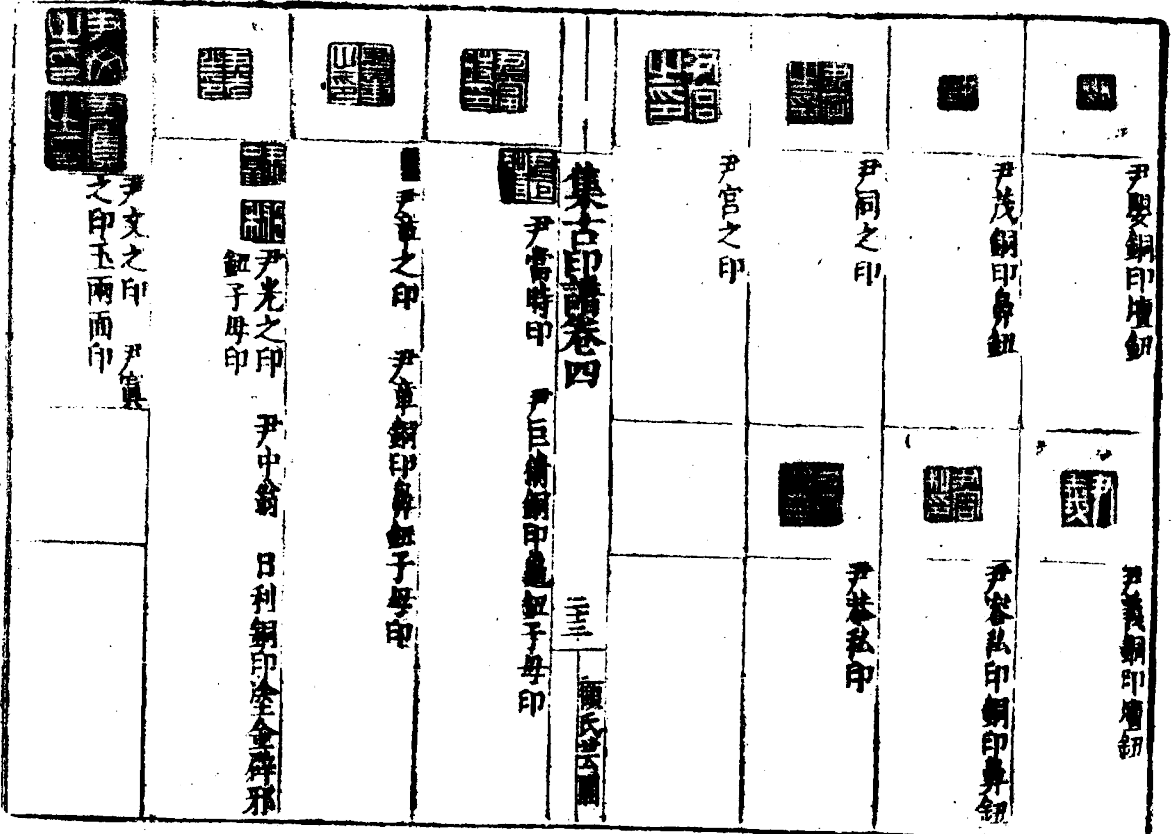 尹嬰銅印壇鈕
尹義銅印壇鈕
尹茂銅印鼻鈕
尹容私印銅印鼻鈕
尹祠之印
尹恭私印
尹宮之印
集古印譜卷四
二十三
顧氏芸閣
尹當時印 尹巨銅印龜鈕子母印
尹章之印 尹章銅印鼻鈕子母印
尹光之印 尹中翁 日利銅印塗金辟邪
鈕子母印
尹文之印 尹寘
之印玉兩面印